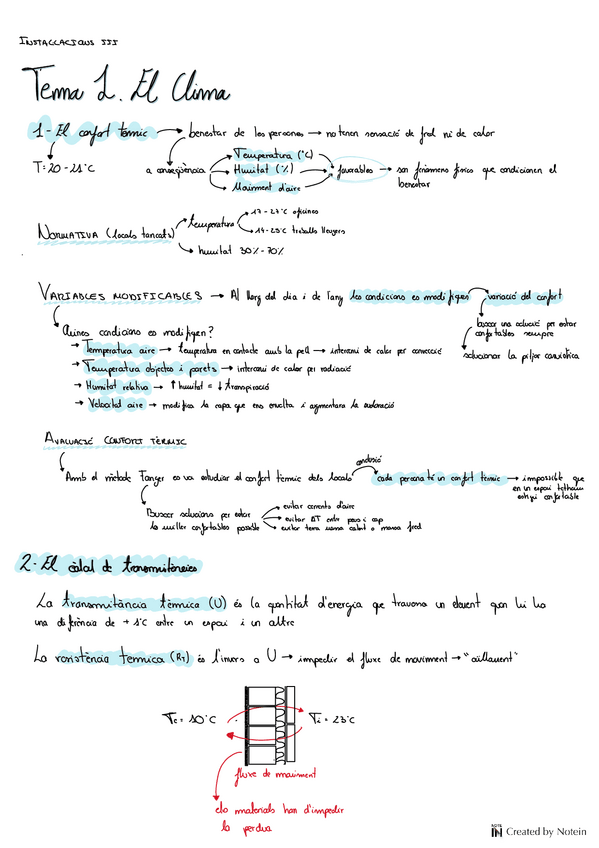 INSTAL·LACIONS III
Tema 1. El Clima
1- El confort tèrmic → benestar de les persones → no tenen sensació de fred ni de calor
T = 20 - 21°C
a conseqüència
Temperatura (°C)
Humitat (%)
Moviment d'aire
favorables → són fenòmens físics que condicionen el
benestar
NORMATIVA (locals tancats)
temperatura
17 - 27°C oficines
14 - 25°C treballs lleugers
humitat 30% - 70%
VARIABLES MODIFICABLES → Al llarg del dia i de l'any les condicions es modifiquen
variació del confort
buscar una solució per estar
confortables sempre
solucionar la pitjor casuística
Quines condicions es modifiquen?
→ Temperatura aire → temperatura en contacte amb la pell → intercanvi de calor per convecció
→ Temperatura objectes i parets → intercanvi de calor per radiació
→ Humitat relativa → ↑ humitat = ↓ transpiració
→ Velocitat aire → modifica la capa que ens envolta i augmentarà la
AVALUACIÓ CONFORT TÈRMIC
Amb el mètode Fanger es va estudiar el confort tèrmic dels locals
conclusió
cada persona té un confort tèrmic → impossible que
en un espai tothom
estigui confortable
Buscar solucions per estar
lo millor confortables possible
evitar corrents d'aire
evitar ΔT entre peus i cap
evitar terra massa calent o massa fred
2- El càlcul de transmitàncies
La transmitància tèrmica (U) és la quantitat d'energia que travessa un element quan hi ha
una diferència de 1°C entre un espai i un altre
La resistència tèrmica (RT) és l'invers a U → impedir el fluxe de moviment → "aïllament"
Te = 10°C
Ti = 23°C
fluxe de moviment
els materials han d'impedir
la pèrdua
NOTE IN Created by Notein